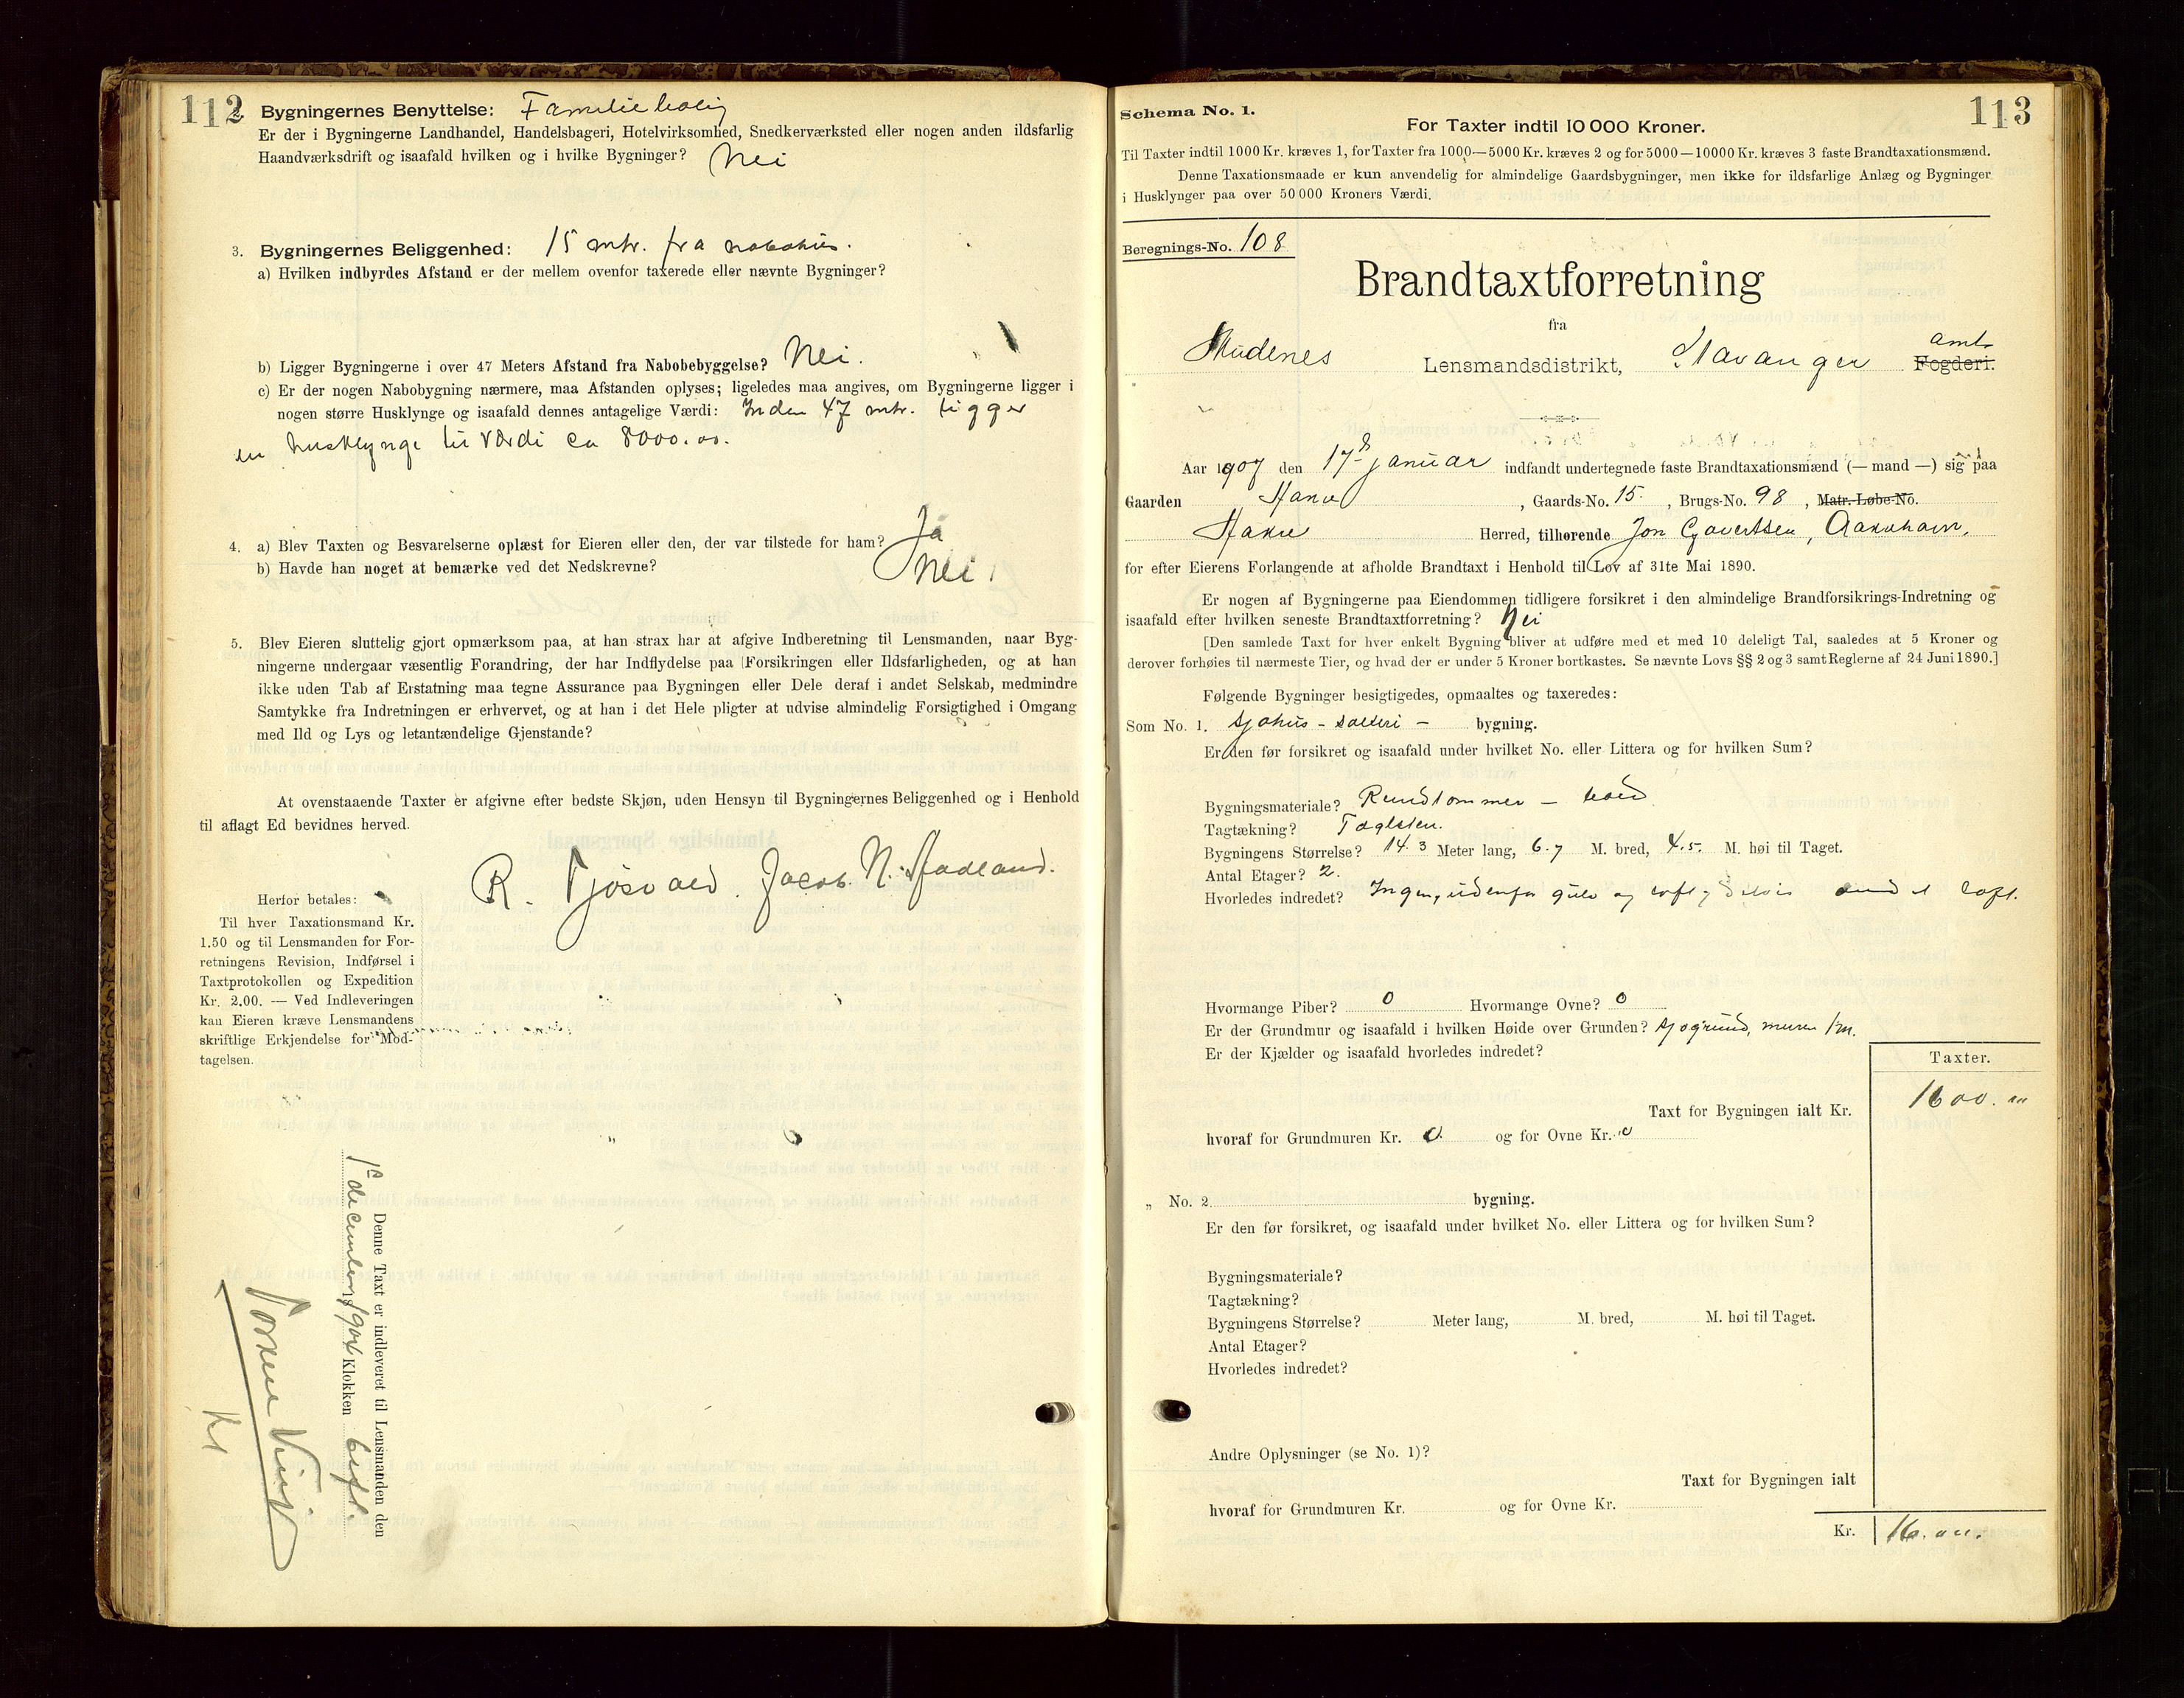 112
2. Bygningernes Benyttelse: Familiebolig
Er der i Bygningerne Landhandel, Handelsbageri, Hotelvirksomhed, Snedkerværksted eller nogen anden ildsfarlig
Haandværksdrift og isaafald hvilken og i hvilke Bygninger? Nei
3. Bygningernes Beliggenhed: 15 mtr. fra nabohus.
a) Hvilken indbyrdes Afstand er der mellem ovenfor taxerede eller nævnte Bygninger?
b) Ligger Bygningerne i over 47 Meters Afstand fra Nabobebyggelse? Nei.
c) Er der nogen Nabobygning nærmere, maa Afstanden oplyses; ligeledes maa angives, om Bygningerne ligger i
nogen større Husklynge og isaafald dennes antagelige Værdi: Inden 47 mtr. ligger
en husklynge til Værdi ca 8000.00.
4. a) Blev Taxten og Besvarelserne oplæst for Eieren eller den, der var tilstede for ham? Ja
b) Havde han noget at bemærke ved det Nedskrevne? Nei
5. Blev Eieren sluttelig gjort opmærksom paa, at han strax har at afgive Indberetning til Lensmanden, naar Byg-
ningerne undergaar væsentlig Forandring, der har Indflydelse paa Forsikringen eller Ildsfarligheden, og at han
ikke uden Tab af Erstatning maa tegne Assurance paa Bygningen eller Dele deraf i andet Selskab, medmindre
Samtykke fra Indretningen er erhvervet, og at han i det Hele pligter at udvise almindelig Forsigtighed i Omgang
med Ild og Lys og letantændelige Gjenstande?
At ovenstaaende Taxter er afgivne efter bedste Skjøn, uden Hensyn til Bygningernes Beliggenhed og i Henhold
til aflagt Ed bevidnes herved.
R. Tjösvold. Jacob N. Stadland.
Herfor betales:
Til hver Taxationsmand Kr.
1.50 og til Lensmanden for For-
retningens Revision, Indførsel i
Taxtprotokollen og Expedition
Kr. 2.00. — Ved Indleveringen
kan Eieren kræve Lensmandens
skriftlige Erkjendelse for Mod-
tagelsen.
Denne Taxt er indleveret til Lensmanden den
1ste december 1906 Klokken 6 eft.
113
Schema No. 1.
For Taxter indtil 10 000 Kroner.
Til Taxter indtil 1000 Kr. kræves 1, for Taxter fra 1000—5000 Kr. kræves 2 og for 5000—10000 Kr. kræves 3 faste Brandtaxationsmænd.
Denne Taxationsmaade er kun anvendelig for almindelige Gaardsbygninger, men ikke for ildsfarlige Anlæg og Bygninger
i Husklynger paa over 50 000 Kroners Værdi.
Beregnings-No. 108
Brandtaxtforretning
fra
Skudenes Lensmandsdistrikt, Stavanger amt Fogderi.
Aar 1907 den 17de januar indfandt undertegnede faste Brandtaxationsmænd (— mand —) sig paa
Gaarden , Gaards-No. 15. , Brugs-No. 98 , Matr.-Løbe-No.
Herred, tilhørende Jon Govertsen, Aakrehavn,
for efter Eierens Forlangende at afholde Brandtaxt i Henhold til Lov af 31te Mai 1890.
Er nogen af Bygningerne paa Eiendommen tidligere forsikret i den almindelige Brandforsikrings-Indretning og
isaafald efter hvilken seneste Brandtaxtforretning? Nei
[Den samlede Taxt for hver enkelt Bygning bliver at udføre med et med 10 deleligt Tal, saaledes at 5 Kroner og
derover forhøies til nærmeste Tier, og hvad der er under 5 Kroner bortkastes. Se nævnte Lovs §§ 2 og 3 samt Reglerne af 24 Juni 1890.]
Følgende Bygninger besigtigedes, opmaaltes og taxeredes:
Som No. 1. sjøhus - salteri - bygning.
Er den før forsikret og isaafald under hvilket No. eller Littera og for hvilken Sum?
Bygningsmateriale? Rundtømmer - bord
Tagtækning? Taglsten.
Bygningens Størrelse? 14.3 Meter lang, 6.7 M. bred, 4.5. M. høi til Taget.
Antal Etager? 2.
Hvorledes indredet? Ingen, udenfor gulv og loft, loft.
Hvormange Piber? 0 Hvormange Ovne? 0
Er der Grundmur og isaafald i hvilken Høide over Grunden? sjøgrund, muren 1 m.
Er der Kjælder og isaafald hvorledes indredet?
Taxter.
Taxt for Bygningen ialt Kr. 1600.
hvoraf for Grundmuren Kr. 0. og for Ovne Kr. 0
„ No. 2. bygning.
Er den før forsikret, og isaafald under hvilket No. eller Littera og for hvilken Sum?
Bygningsmateriale?
Tagtækning?
Bygningens Størrelse? Meter lang, M. bred, M. høi til Taget.
Antal Etager?
Hvorledes indredet?
Andre Oplysninger (se No. 1)?
Taxt for Bygningen ialt
hvoraf for Grundmuren Kr. og for Ovne Kr.
Kr.